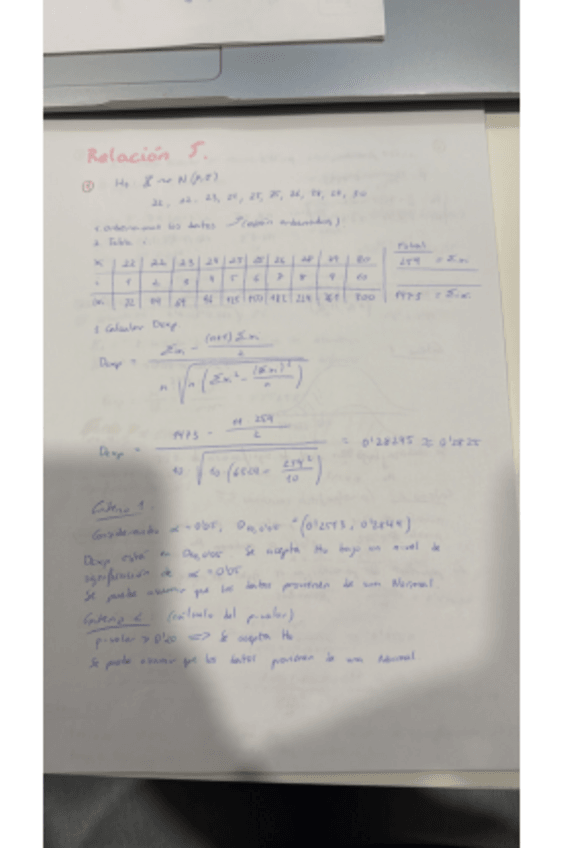 Relación 5.
① H₀: X ~ N(μ,σ)
22, 22, 23, 24, 25, 25, 26, 28, 29, 30
1. Ordenamos los datos → (están ordenados)
2. Tabla:
xi 22 22 23 24 25 25 26 28 29 30 Total 254 = Σxi
i 1 2 3 4 5 6 7 8 9 10
ixi 22 44 69 96 125 150 182 224 261 300 1473 = Σixi
3 Calcular Dexp
Dexp = (Σixi - (n+1)Σxi / 2) / (n √(n (Σxi² - (Σxi)² / n)))
Dexp = (1473 - 11·254 / 2) / (10 √(10·( - 254² / 10))) = 0'28245 ≈ 0'2825
Criterio 1.
Considerando α = 0'05, D10,0'05 = (0'2513, 0'2849)
Dexp está en D10,0'05 Se acepta H₀ bajo un nivel de
significación de α = 0'05
Se puede asumir que los datos provienen de una Normal
Criterio 2 (cálculo del p-valor)
p-valor > 0'20 => Se acepta H₀
Se puede asumir que los datos provienen de una Normal